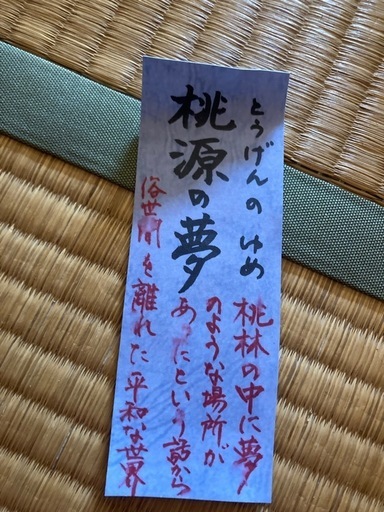 とうげんのゆめ
桃源の夢
桃林の中に夢
のような場所が
あったという話から
俗世間を離れた平和な世界